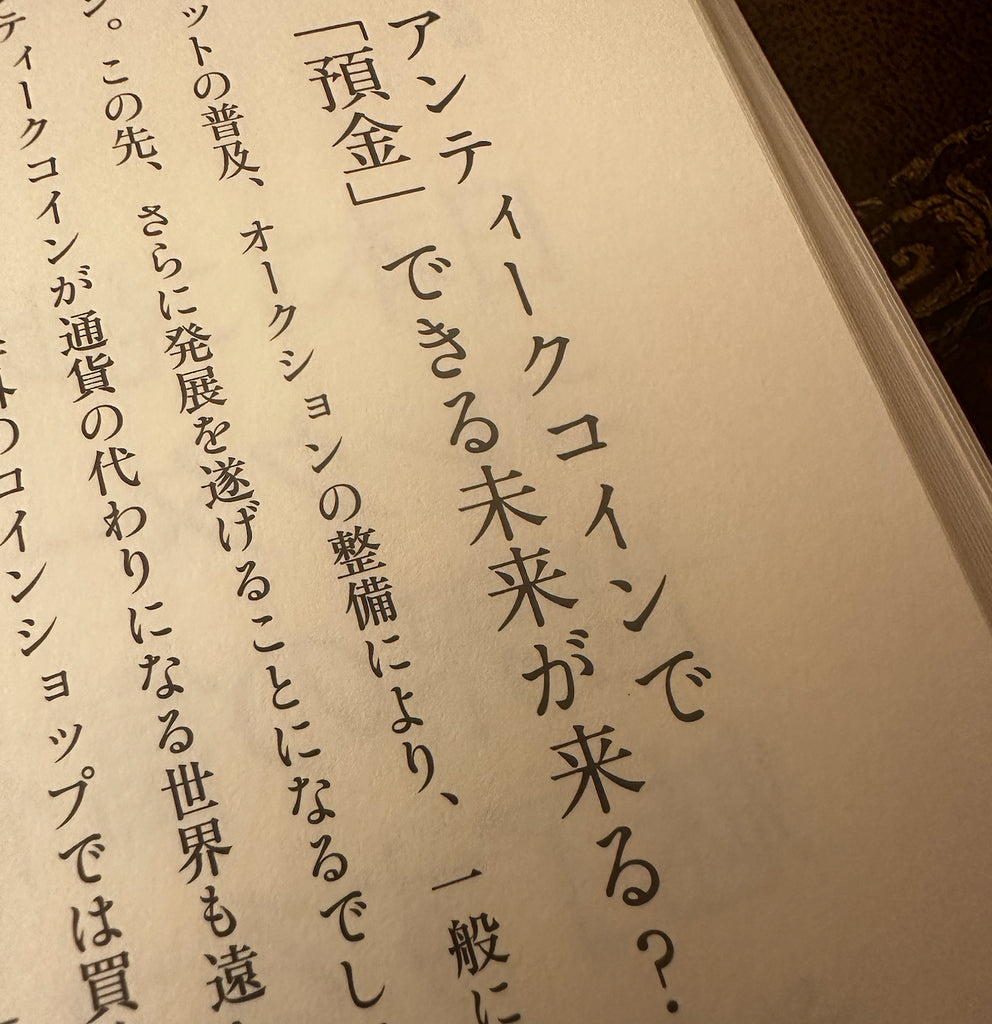 アンティークコインで
「預金」できる未来が来る？
ットの普及、オークションの整備により、一般に
ン。この先、さらに発展を遂げることになるでし
ティークコインが通貨の代わりになる世界も遠
外のコインショップでは買